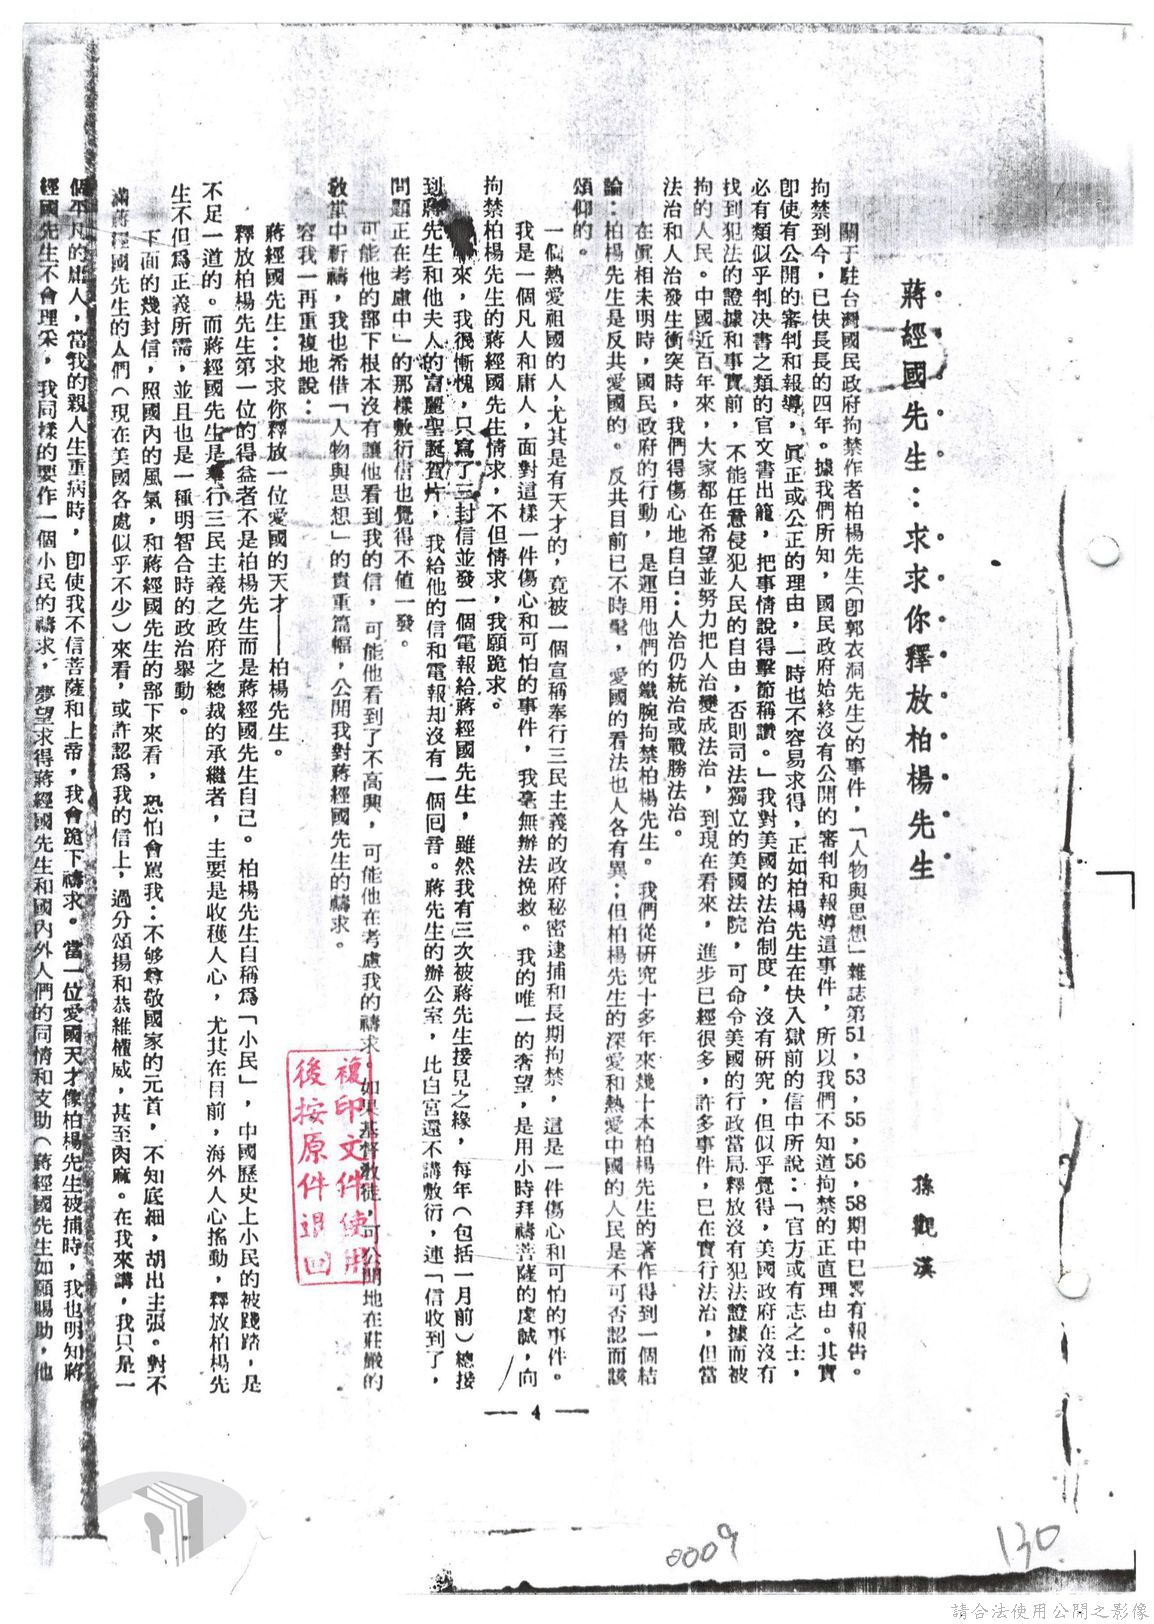 蔣經國先生：求求你釋放柏楊先生
孫觀漢
關于駐台灣國民政府拘禁作者柏楊先生(卽郭衣洞先生)的事件，「人物與思想」雜誌第51，53，55，56，58期中已畧有報告。
拘禁到今，已快長長的四年。據我們所知，國民政府始終沒有公開的審判和報導這事件，所以我們不知道拘禁的正直理由。其實
卽使有公開的審判和報導，眞正或公正的理由，一時也不容易求得，正如柏楊先生在快入獄前的信中所說：「官方或有志之士，
必有類似乎判决書之類的官文書出籠，把事情說得擊節稱讚。」我對美國的法治制度，沒有硏究，但似乎覺得，美國政府在沒有
找到犯法的證據和事實前，不能任意侵犯人民的自由，否則司法獨立的美國法院，可命令美國的行政當局釋放沒有犯法證據而被
拘的人民。中國近百年來，大家都在希望並努力把人治變成法治，到現在看來，進步已經很多，許多事件，已在實行法治，但當
法治和人治發生衝突時，我們得傷心地自白：人治仍統治或戰勝法治。
在眞相未明時，國民政府的行動，是運用他們的鐵腕拘禁柏楊先生。我們從硏究十多年來幾十本柏楊先生的著作得到一個結
論：柏楊先生是反共愛國的。反共目前已不時髦，愛國的看法也人各有異；但柏楊先生的深愛和熱愛中國的人民是不可否認而該
頌仰的。
一個熱愛祖國的人，尤其是有天才的，竟被一個宣稱奉行三民主義的政府秘密逮捕和長期拘禁，這是一件傷心和可怕的事件。
我是一個凡人和庸人，面對這樣一件傷心和可怕的事件，我毫無辦法挽救。我的唯一的奢望，是用小時拜禱菩薩的虔誠，向
拘禁柏楊先生的蔣經國先生情求，不但情求，我願跪求。
來，我很慚愧，只寫了三封信並發一個電報給蔣經國先生，雖然我有三次被蔣先生接見之緣，每年(包括一月前)總接
到蔣先生和他夫人的富麗聖誕賀片，我給他的信和電報却沒有一個囘音。蔣先生的辦公室，比白宮還不講敷衍，連「信收到了，
問題正在考慮中」的那樣敷衍信也覺得不値一發。
可能他的部下根本沒有讓他看到我的信，可能他看到了不高興，可能他在考慮我的禱求。如果基督敎徒，可公開地在莊嚴的
敎堂中祈禱，我也希借「人物與思想」的貴重篇幅，公開我對蔣經國先生的禱求。
容我一再重複地說：
蔣經國先生：求求你釋放一位愛國的天才——柏楊先生。
釋放柏楊先生第一位的得益者不是柏楊先生而是蔣經國先生自己。柏楊先生自稱爲「小民」，中國歷史上小民的被踐踏，是
不足一道的。而蔣經國先生是奉行三民主義之政府之總裁的承繼者，主要是收穫人心，尤其在目前，海外人心搖動，釋放柏楊先
生不但爲正義所需，並且也是一種明智合時的政治舉動。
下面的幾封信，照國內的風氣，和蔣經國先生的部下來看，恐怕會罵我：不够尊敬國家的元首，不知底細，胡出主張。對不
滿蔣經國先生的人們(現在美國各處似乎不少)來看，或許認爲我的信上，過分頌揚和恭維權威，甚至肉麻。在我來講，我只是一
個平凡的庸人，當我的親人生重病時，卽使我不信菩薩和上帝，我會跪下禱求。當一位愛國天才像柏楊先生被捕時，我也明知蔣
經國先生不會理采，我同樣的要作一個小民的禱求，夢望求得蔣經國先生和國內外人們的同情和支助(蔣經國先生如願賜助，他
— 4 —
複印文件使用
後按原件退回
0009
130
請合法使用公開之影像